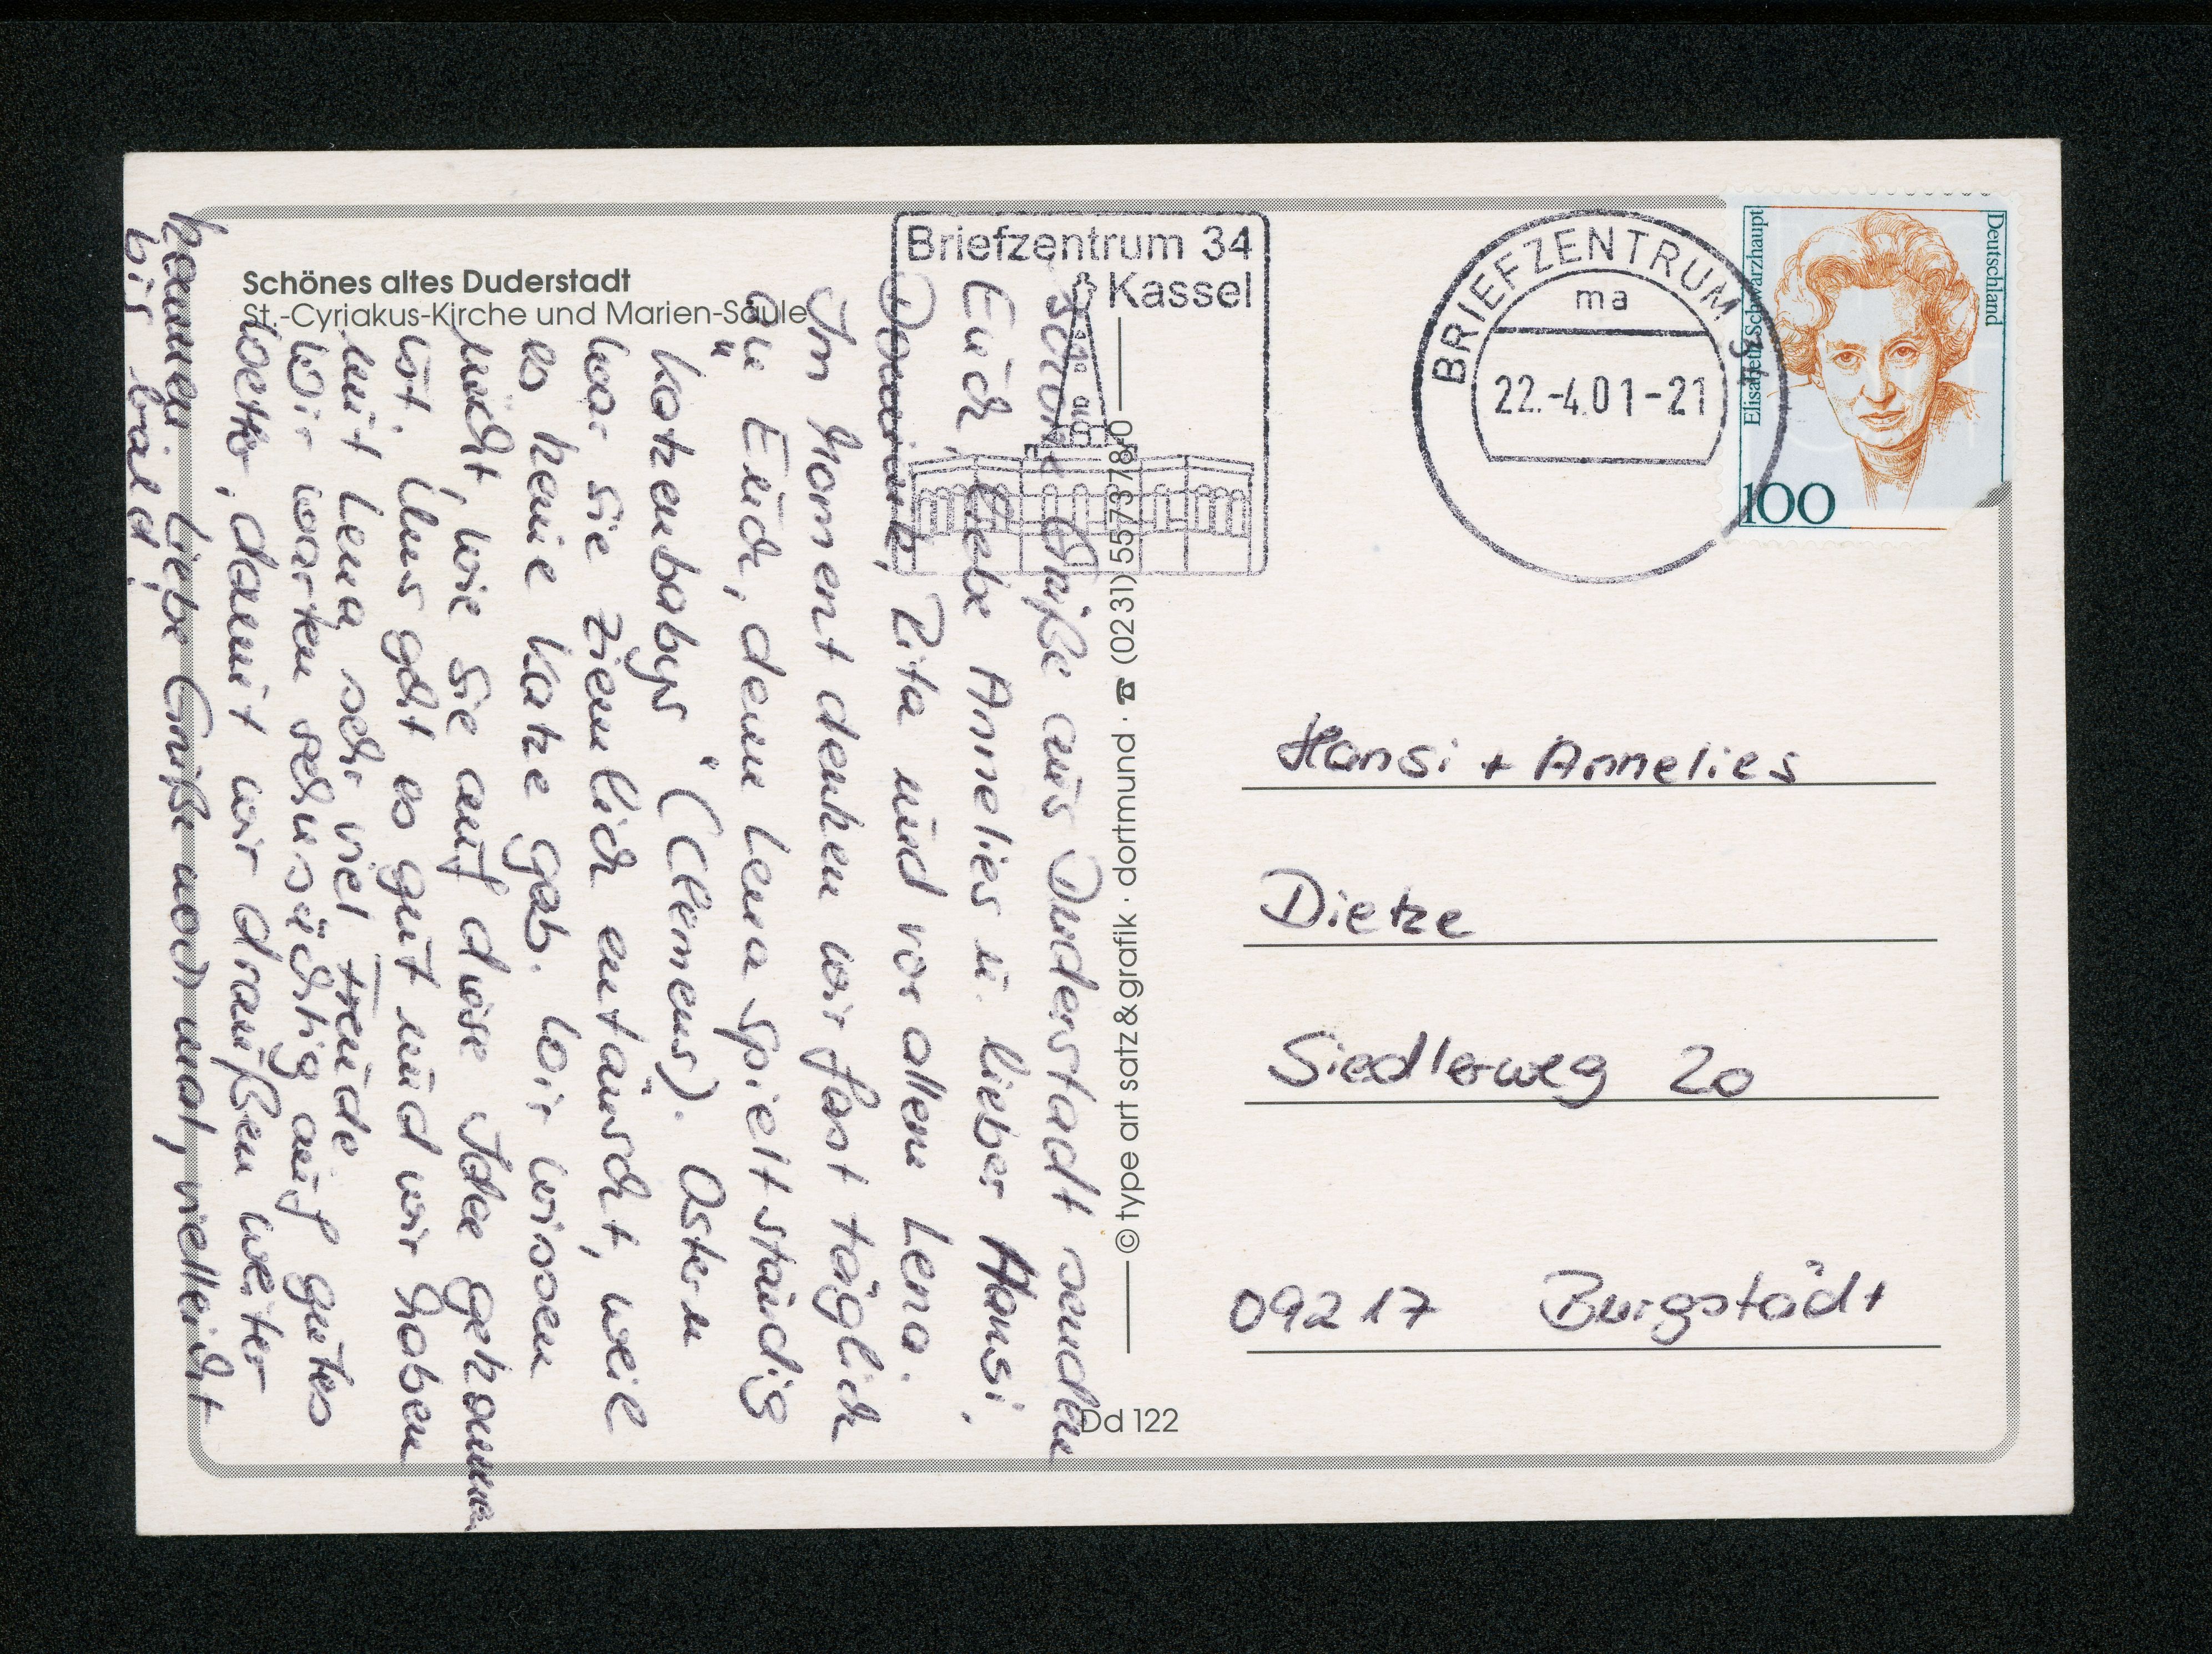 Schönes altes Duderstadt
St.-Cyriakus-Kirche und Marien-Säule
Briefzentrum 34
Kassel
BRIEFZENTRUM 34
ma
22.-4.01-21
Deutschland
Elisabeth Schwarzhaupt
100
Schöne Grüße aus Duderstadt senden
Euch, liebe Annelies u. lieber Hansi,
Zita und vor allem Lena.
Im Moment denken wir fast täglich
an Euch, denn Lena spielt ständig
"Katzenbabys" (Clemens). Ostern
war sie ziemlich enttäuscht, weil
es keine Katze gab. Wir wissen
nicht, wie sie auf diese Idee gekommen
ist. Uns geht es gut und wir haben
mit Lena sehr viel Freude.
Wir warten sehnsüchtig auf gutes
Wetter, damit wir draußen weiter
kommen. Liebe Grüße noch mal, vielleicht
bis bald!
© type art satz & grafik · dortmund · ☎ (0231) 557378-0
Dd 122
Hansi + Annelies
Dietze
Siedlerweg 20
09217 Burgstädt